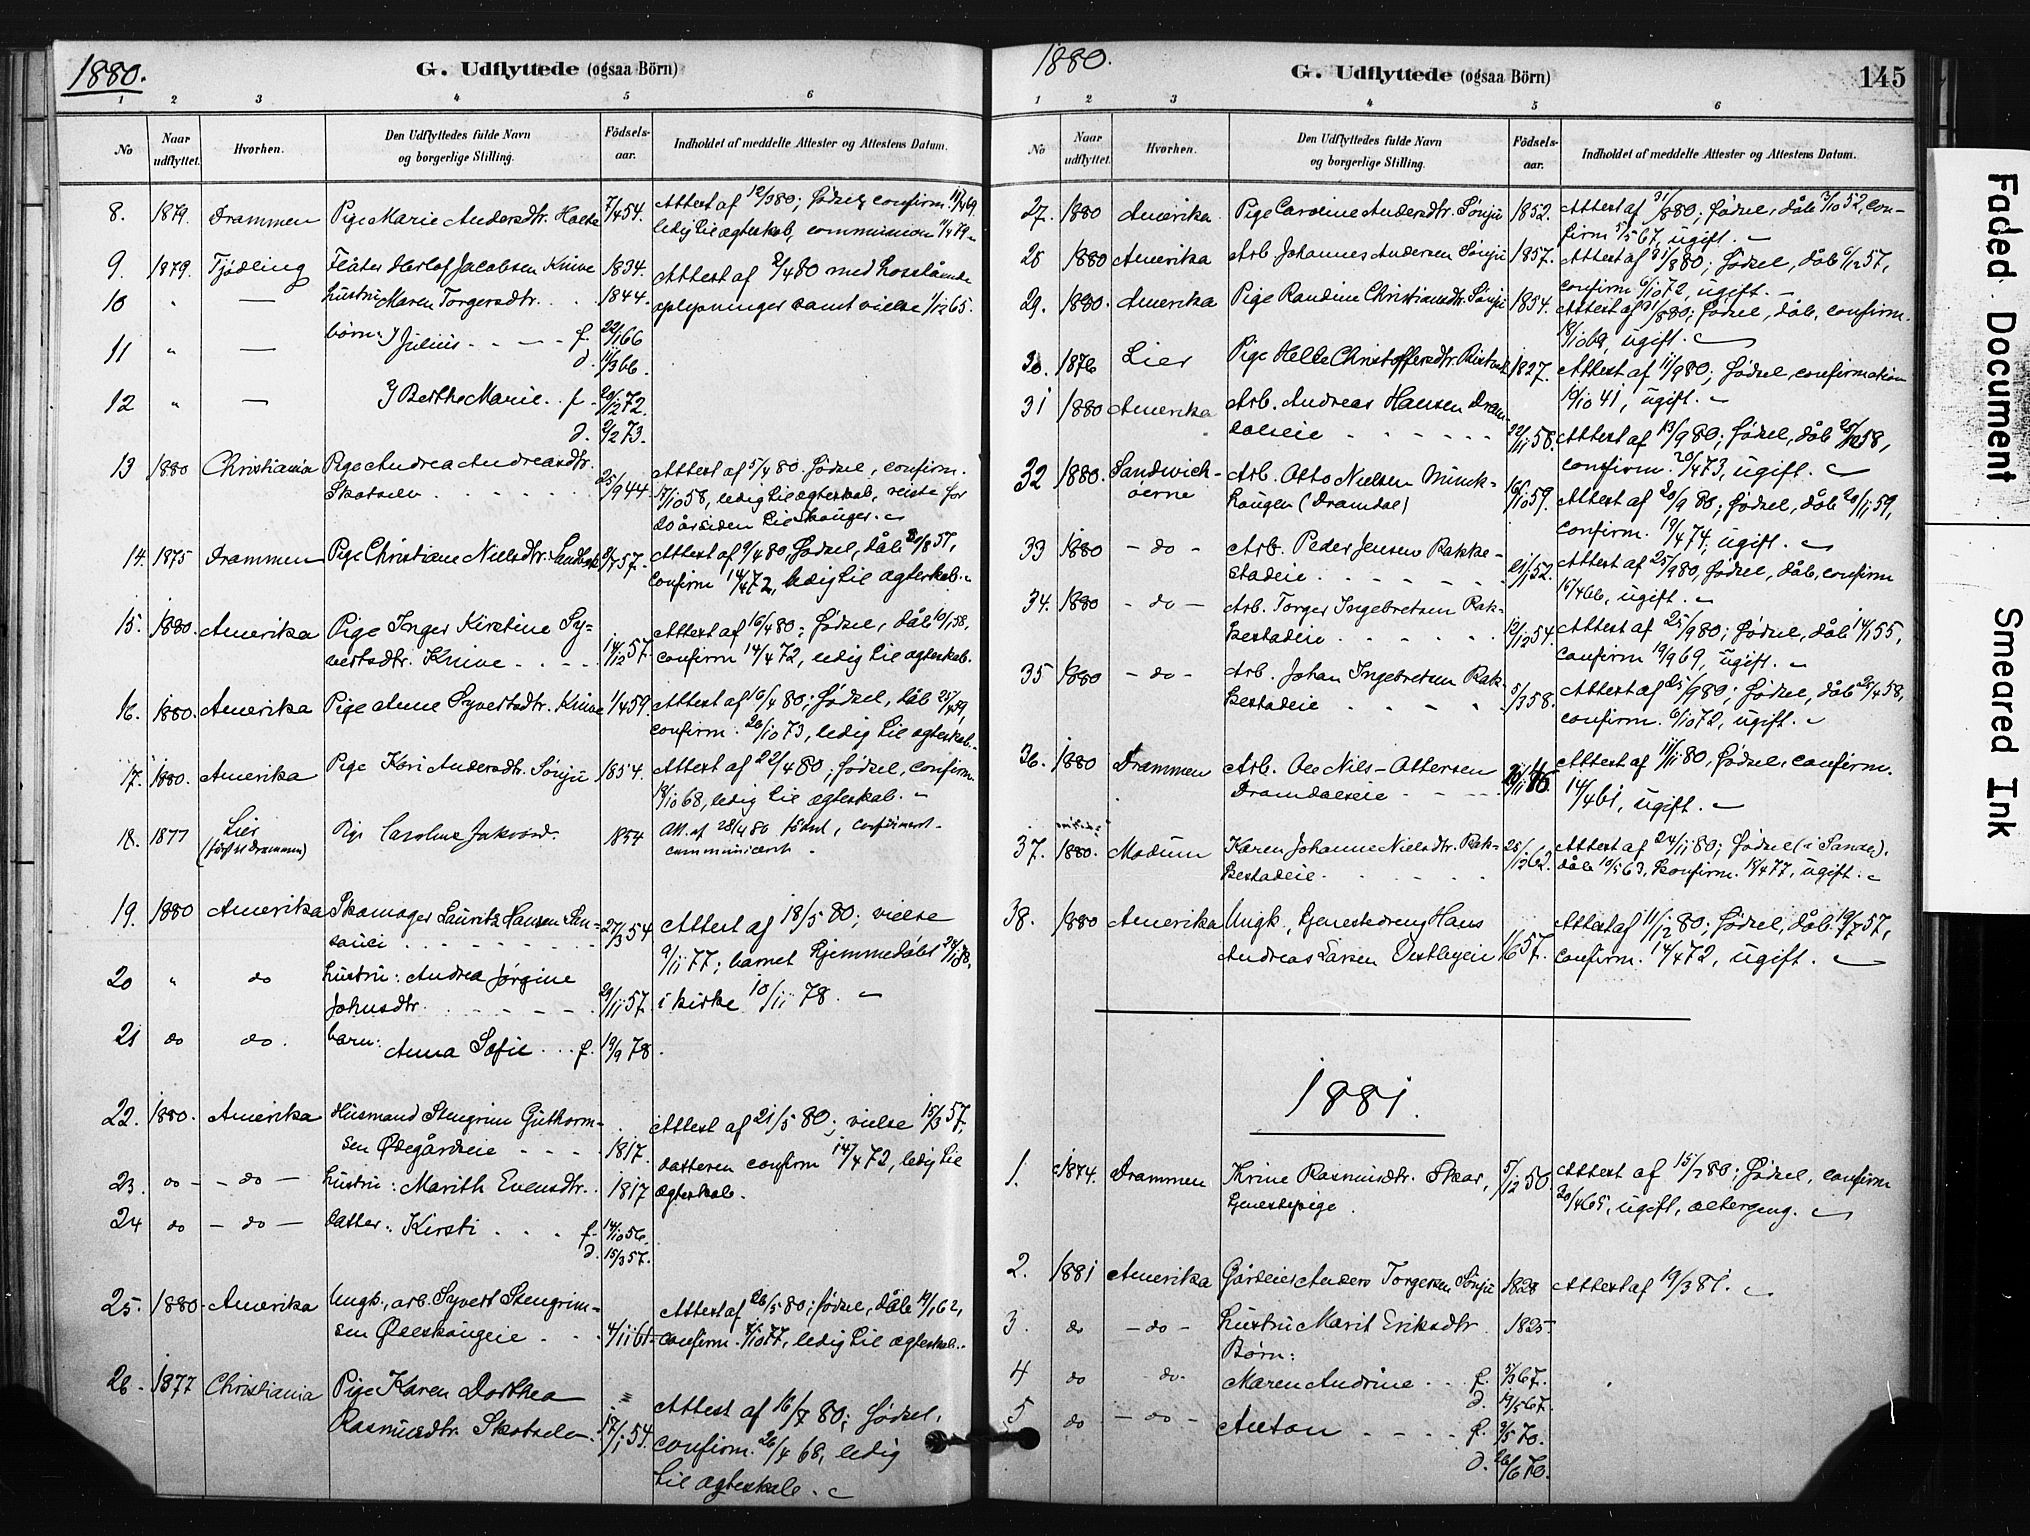 1880.
G. Udflyttede (ogsaa Börn)
1 2 3 4 5 6
No
Naar udflyttet.
Hvorhen.
Den Udflyttedes fulde Navn og borgerlige Stilling.
Födsels-aar.
Indholdet af meddelte Attester og Attestens Datum.
8. 1879. Drammen Pige Marie Andersdtr. 7/4 54. Attest af 12/3 80; fødsel, confirm.
ledig til ægteskab, communion
9. 1879. Tjødling Jacobsen Knive 1834. Attest af 2/4 80 med
10 " — hustru Maren Torgersdtr. . . 1844. oplysninger samt vielse 1/12 65.
11 " — børn: Julius - - - - f. 22/1 66
d. 11/3 66.
12 " — Berthe Marie . . f. 20/12 72.
d. 2/2 73.
13 1880 Christiania Pige Andrea Andreasdtr.
Skotselv . . . . . . 25/9 44. Attest af 5/4 80. fødsel, confirm.
17/10 58, ledig til ægteskab, reiste for
20 år siden til Skouger.
14. 1875 Drammen Pige Christiane Nielsdtr. 57. Attest af 9/4 80, fødsel, dåb 57,
confirm 14/4 72, ledig til ægteskab.
15. 1880. Amerika Pige Inger Kirstine Sy=
vertsdtr. Knive . . . . 14/12 57. Attest af 16/4 80; fødsel, dåb 58,
confirm 14/4 72, ledig til ægteskab.
16. 1880. Amerika Pige Anne Syvertsdtr. Knive 1/4 59. Attest af 16/4 80; fødsel, dåb
confirm. 26/10 73, ledig til ægteskab.
17. 1880. Amerika Pige Kari Andersdtr. Sönju 1854. Attest af 22/4 80; fødsel, confirm
18/10 68, ledig til ægteskab.
18. 1877 Lier
(først Drammen) Pige Caroline Jakobsd. 1854 Att. af 28/4 80 fødsel, confirmert
communicert.
19. 1880 Amerika Skomager Lauritz Hansen San-
souci . . . . . . . 27/3 54 Attest af 18/5 80; vielse
9/11 77; barnet hjemmedøbt
20 " do hustru: Andrea Jörgine
Johnsdtr. . . . . . 29/11 57. i kirke 10/11 78.
21 do do. barn: Anna Sofie . . . f. 19/9 78.
22. 1880. Amerika Husmand Stengrim Guthorm-
sen Ødegårdseie . . . . 1817. Attest af 21/5 80; vielse 15/3 57,
datteren confirm 14/4 72, ledig til
23. do - - do - hustru: Marith Evensdtr. . 1817 ægteskab.
24 do - do - datter: Kirsti . . . f. 14/10 56.
d. 15/3 57.
25. 1880. Amerika Ungk., arb. Syvert Stengrim-
sen . . 4/11 61. Attest af 26/5 80; fødsel, dåb 19/1 62,
confirm. 7/10 77, ledig til ægteskab.
26. 1877 Christiania Pige Karen Dorthea
Rasmusdtr. Skotselv. 17/1 54. Attest af 16/7 80; fødsel,
confirm. 26/4 68, ledig
til ægteskab.
1880.
G. Udflyttede (ogsaa Börn)
145
1 2 3 4 5 6
No
Naar udflyttet.
Hvorhen.
Den Udflyttedes fulde Navn og borgerlige Stilling.
Födsels-aar.
Indholdet af meddelte Attester og Attestens Datum.
27. 1880 Amerika. Pige Caroline Andersdtr. Sönju 1852. Attest af 31/8 80; fødsel, dåb 3/10 52, con-
firm 5/5 67, ugift.
28 1880 Amerika Arb. Johannes Andersen Sönju 1857. Attest af 31/8 80; fødsel, dåb 6/12 57,
confirm 6/10 72, ugift.
29. 1880. Amerika Pige Randine Christiansdtr. Sönju 1854. Attest af 31/8 80; fødsel, dåb, confirm.
18/10 69, ugift.
30. 1876 Lier Pige Helle Christoffersdtr. 1827. Attest af 11/9 80; fødsel, confirmation
10/10 41, ugift.
31 1880 Amerika Arb. Andreas Hansen Dram-
dalseie . . . . . . 22/11 58. Attest af 13/9 80; fødsel, dåb 58,
confirm. 20/4 73, ugift.
32 1880. Sandwich-
øerne Arb. Otto Nielsen Munck-
haugen (Dramdal) 16/10 59. Attest af 20/9 80; fødsel, dåb 20/11 59,
confirm. 19/4 74, ugift.
33 1880 - do - Arb. Peder Jensen Rakke-
stadeie . . . . . 21/1 52. Attest af 25/9 80, fødsel, dåb, confirm
15/4 66, ugift.
34. 1880 - do - Arb. Torger Ingebretsen Rak-
kestadeie . . . . . 12/12 54. Attest af 25/9 80; fødsel, dåb 14/1 55,
confirm 19/9 69, ugift.
35 1880 - do - Arb. Johan Ingebretsen Rak-
kestadeie . . . . 5/3 58. Attest af 25/9 80; fødsel, dåb 25/4 58,
confirm. 6/10 72, ugift.
36. 1880 Drammen Arb. Nils Ottersen
Dramdalseie . . . Attest af 11/11 80, fødsel, confirm.
14/4 61, ugift.
37. 1880. Modum Karen Johanne Nielsdtr. Rak-
kestadeie . . . . . 25/12 62. Attest af 24/11 80; fødsel (i Sande),
dåb 10/5 63, konfirm. 15/4 77, ugift.
38. 1880 Amerika Ungk., tjenestedreng Hans
Andreas Larsen 1/6 57. Attest af 11/12 80; fødsel, dåb. 19/7 57,
confirm. 14/4 72, ugift.
1881.
1. 1874. Drammen Thrine Rasmusdtr. Skar,
tjenestepige. 5/12 50. Attest af 15/1 80; fødsel, confirm
30/4 65, ugift,
2. 1881 Amerika Gårdeier Anders Torgersen Sönju 1828 Attest af 19/3 81.
3. do - do - hustru Marit Eriksdtr 1825.
Børn:
4 do do. Maren Andrine . . f. 5/3 67.
d. 19/5 67.
5 do - do - Anton . . . . f. 3/5 70.
d. 26/6 70.
Faded Document
Smeared Ink